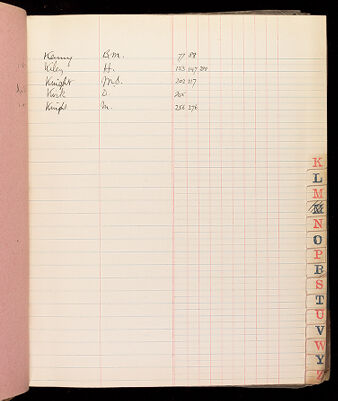 Kenny B.M. 77 88
Kiley H. 153 147 200
Knight J.M.S. 202 217
Kirk D. 205
Knight M. 256 276
K
L
M
N
O
P
R
S
T
U
V
W
Y